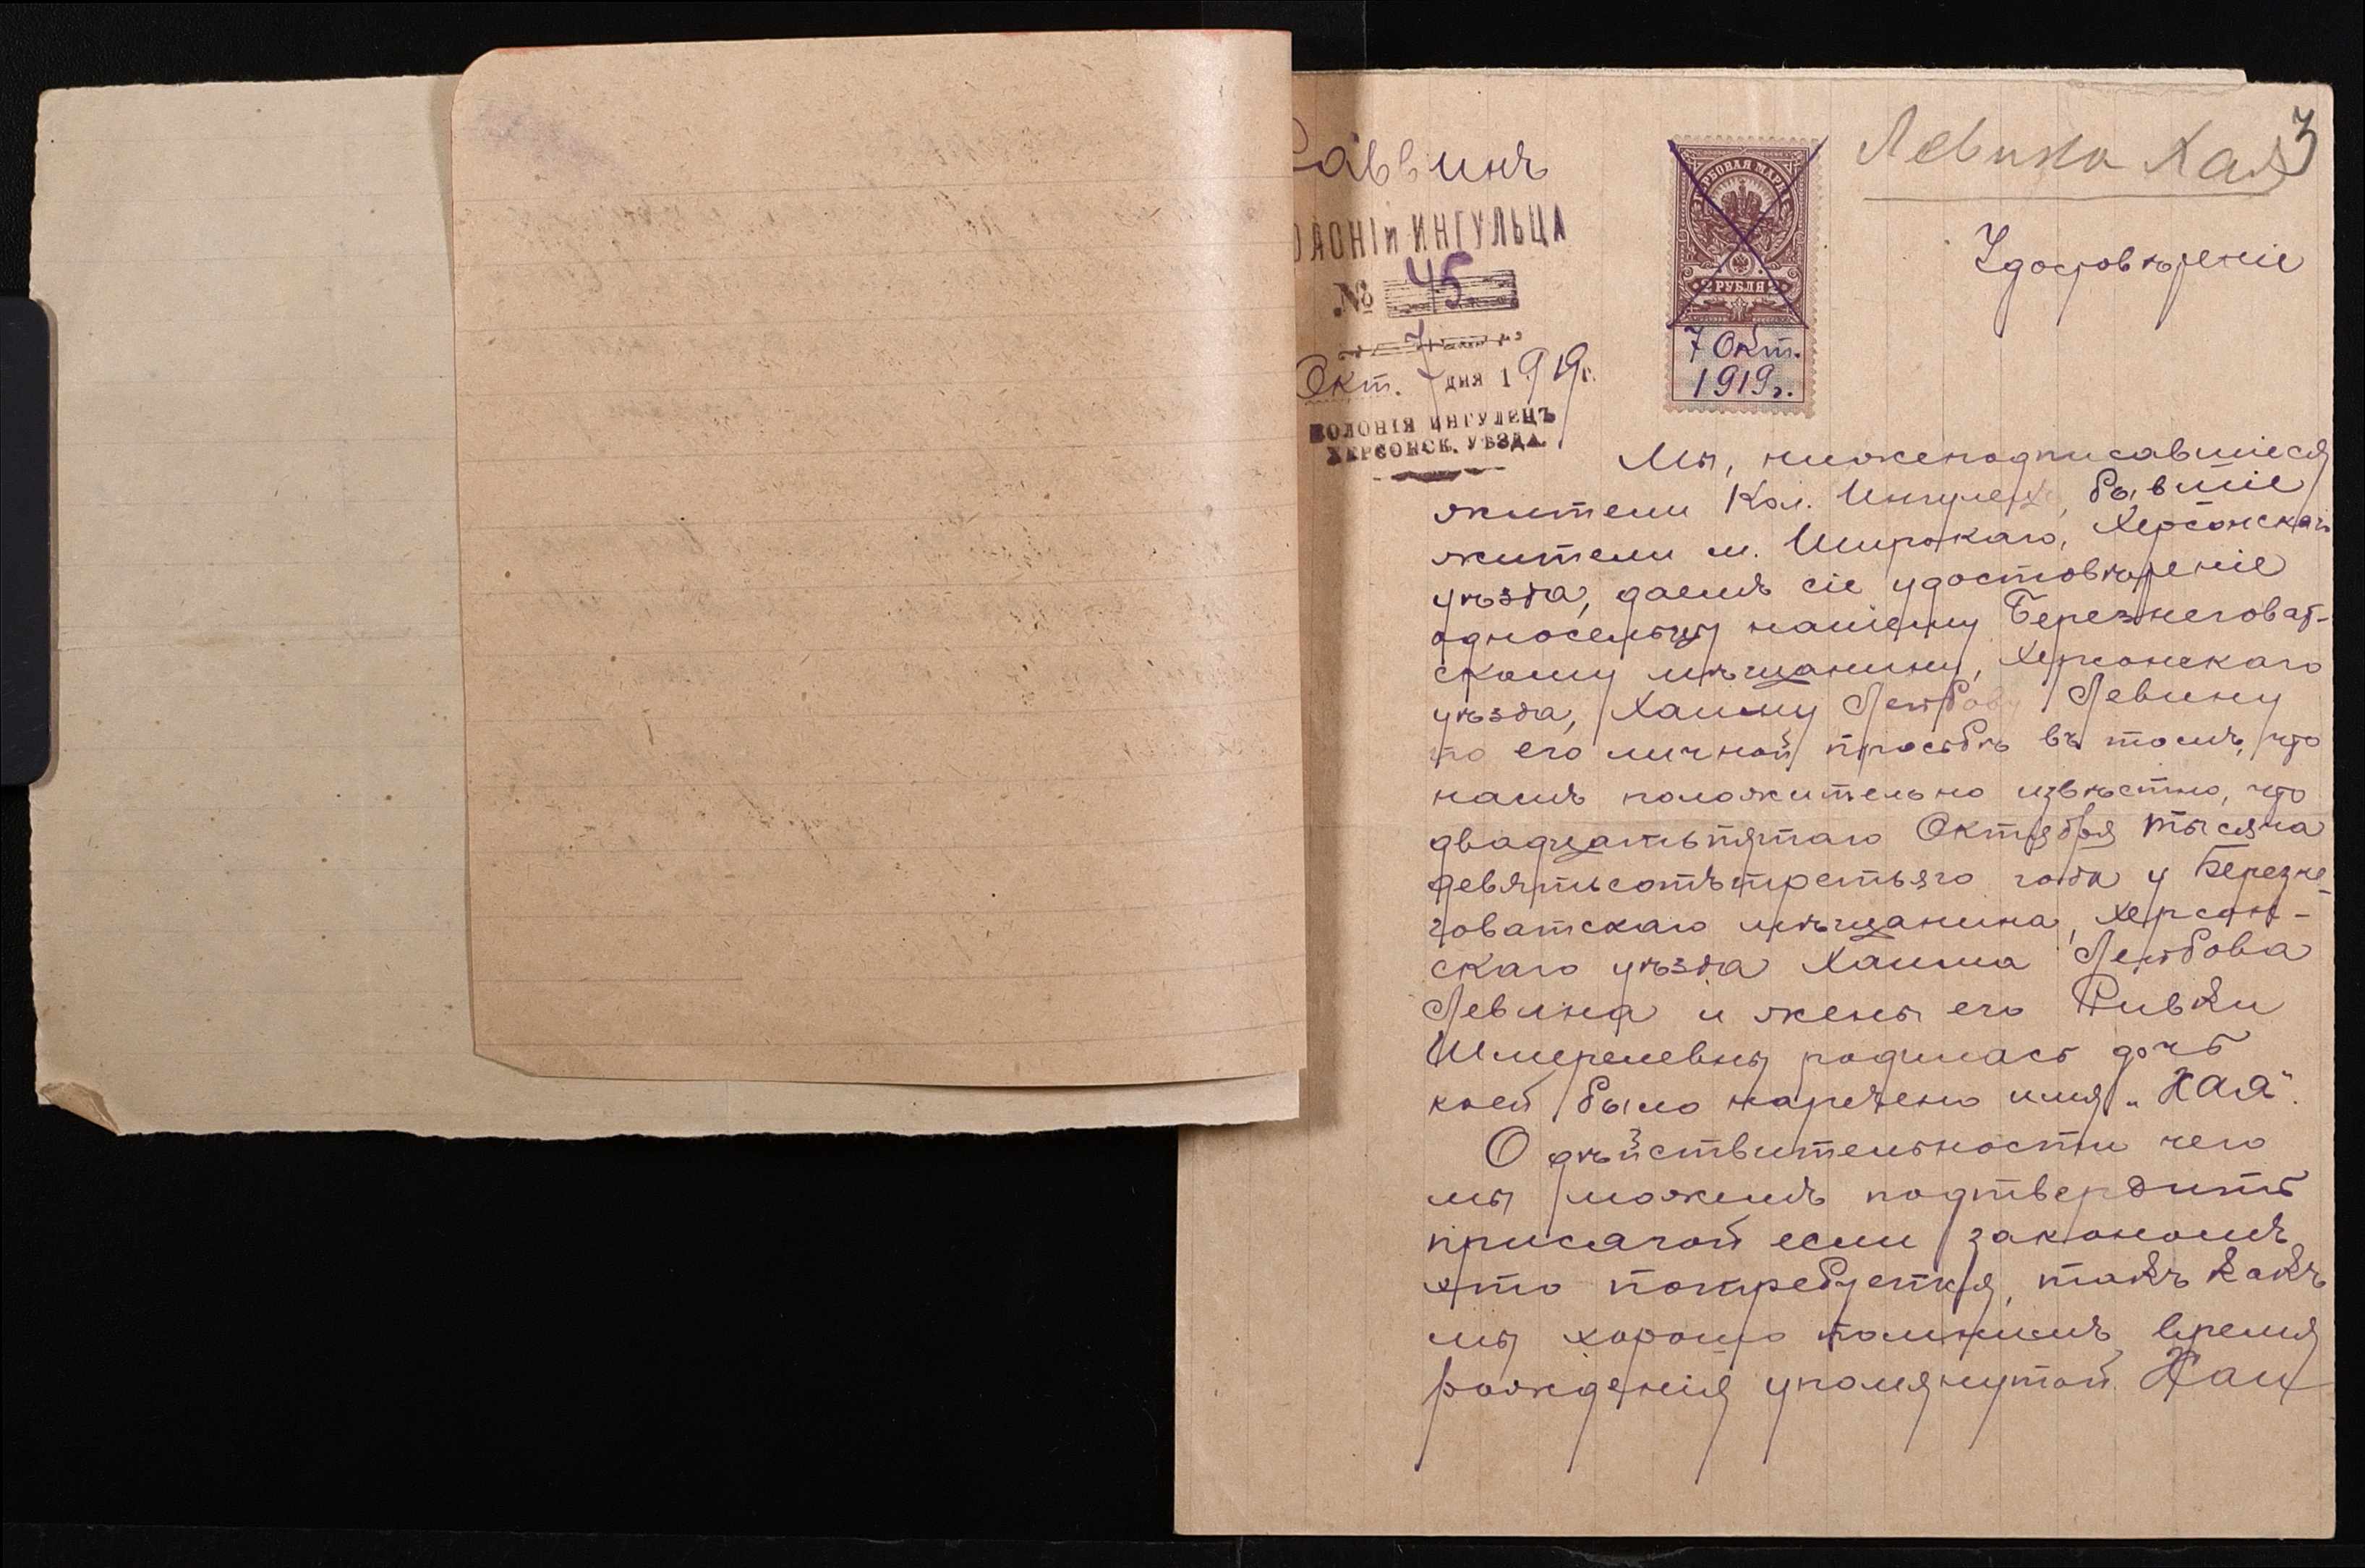 Раввинъ
КОЛОНІи ИНГУЛЬЦА
№ 45
7
Окт. дня 1919г.
КОЛОНІЯ ИНГУЛЕЦЪ
ХЕРСОНСК. УѢЗДА.
ГЕРБОВАЯ МАРКА
2 РУБЛЯ 2
7 Окт.
1919г.
Левина Хая
3
Удостовѣреніе
Мы, нижеподписавшіеся
жители Кол. Ингулецъ, бывшіе
жители м. Широкаго, Херсонскаго
уѣзда, даемъ сіе удостовѣреніе
односельцу нашему Березнеговат-
скому мѣщанину, Херсонскаго
уѣзда, Хаиму Лейбову Левину
по его личной просьбѣ въ томъ, что
намъ положительно извѣстно, что
двадцатьпятаго Октября тысяча
девятьсотътретьяго года у Березне-
говатскаго мѣщанина, Херсон-
скаго уѣзда Хаима Лейбова
Левина и жены его Ривки
Шмерелевны родилась дочь
коей было наречено имя „Хая".
О дѣйствительности чего
мы можемъ подтвердить
присягой если закономъ
это потребуется, такъ какъ
мы хорошо помнимъ время
рожденія упомянутой Хаи